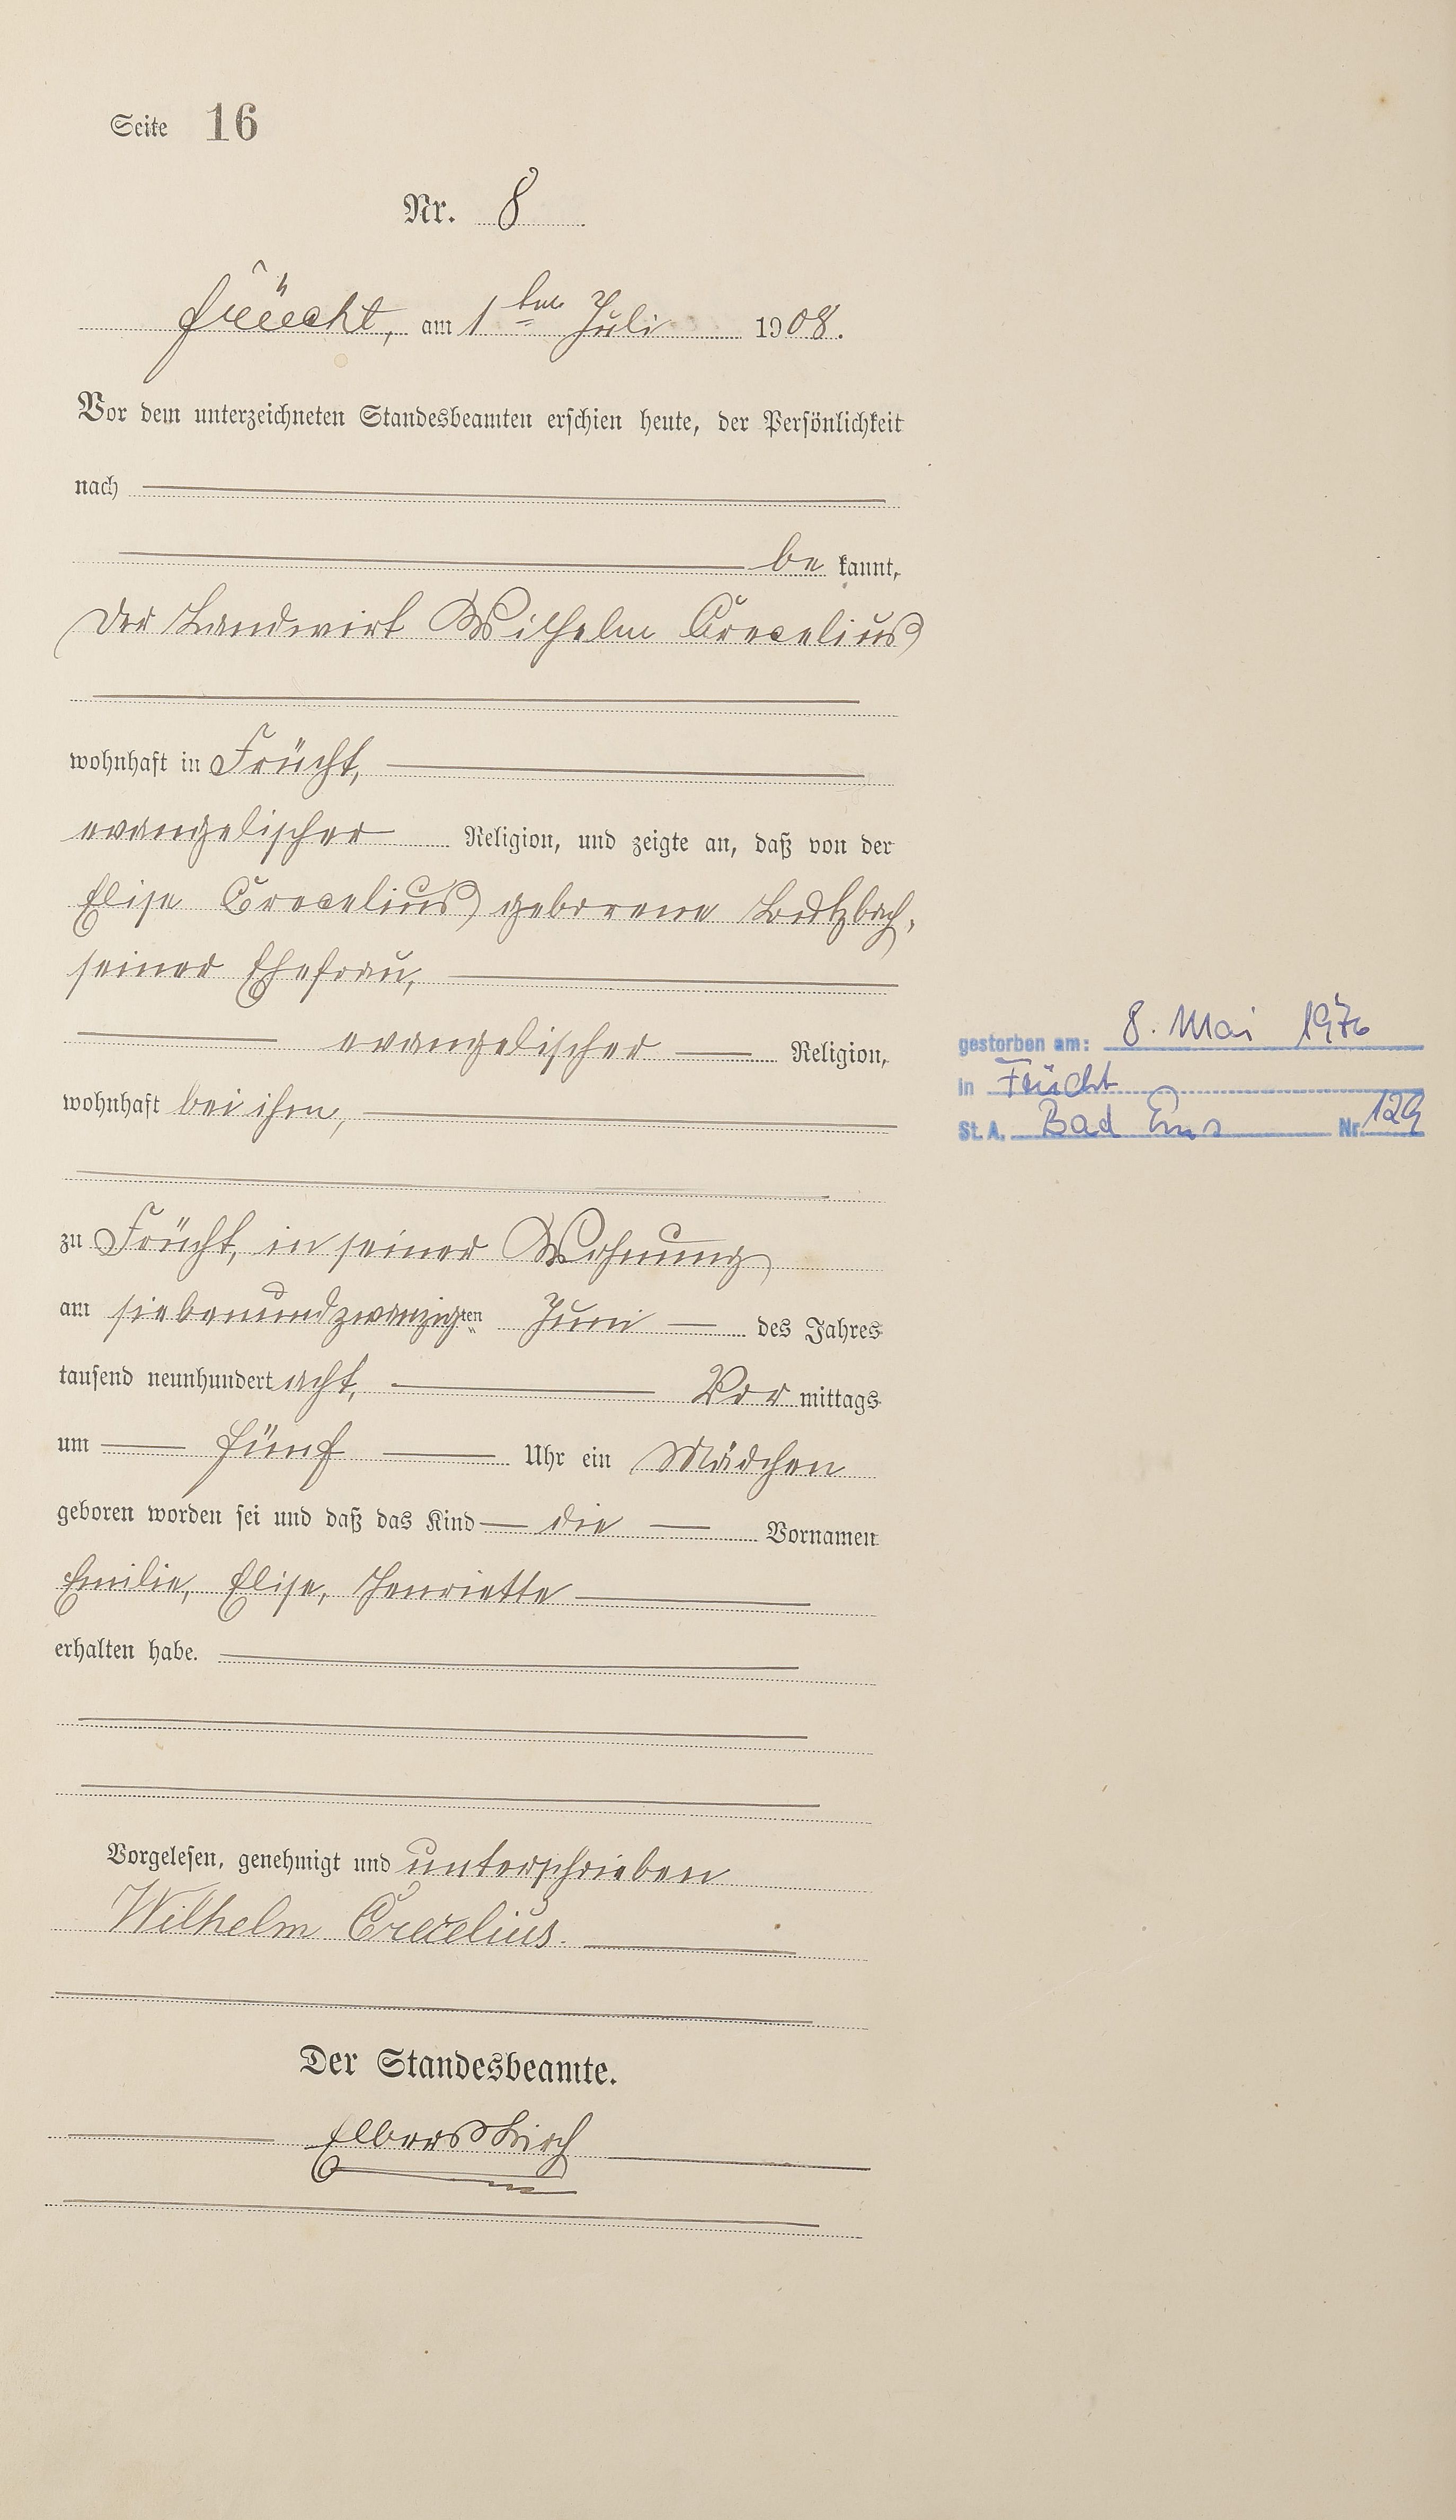 Seite 16
Nr. 8
Frücht, am 1ten Juli 1908.
Vor dem unterzeichneten Standesbeamten erschien heute, der Persönlichkeit
nach
be kannt,
Der Landwirt Wilhelm Crecelius
wohnhaft in Frücht,
evangelischer Religion, und zeigte an, daß von der
Elise Crecelius geborene Butzbach,
seiner Ehefrau,
evangelischer Religion,
wohnhaft bei ihm,
gestorben am: 8. Mai 1976
in Frücht
St. A. Bad Ems Nr. 129
zu Frücht, in seiner Wohnung
am siebenundzwanzigten Juni des Jahres
tausend neunhundert acht, Vor mittags
um fünf Uhr ein Mädchen
geboren worden sei und daß das Kind die Vornamen
Emilie, Elise, Henriette
erhalten habe.
Vorgelesen, genehmigt und unterschrieben
Wilhelm Crecelius.
Der Standesbeamte.
Elberskirch